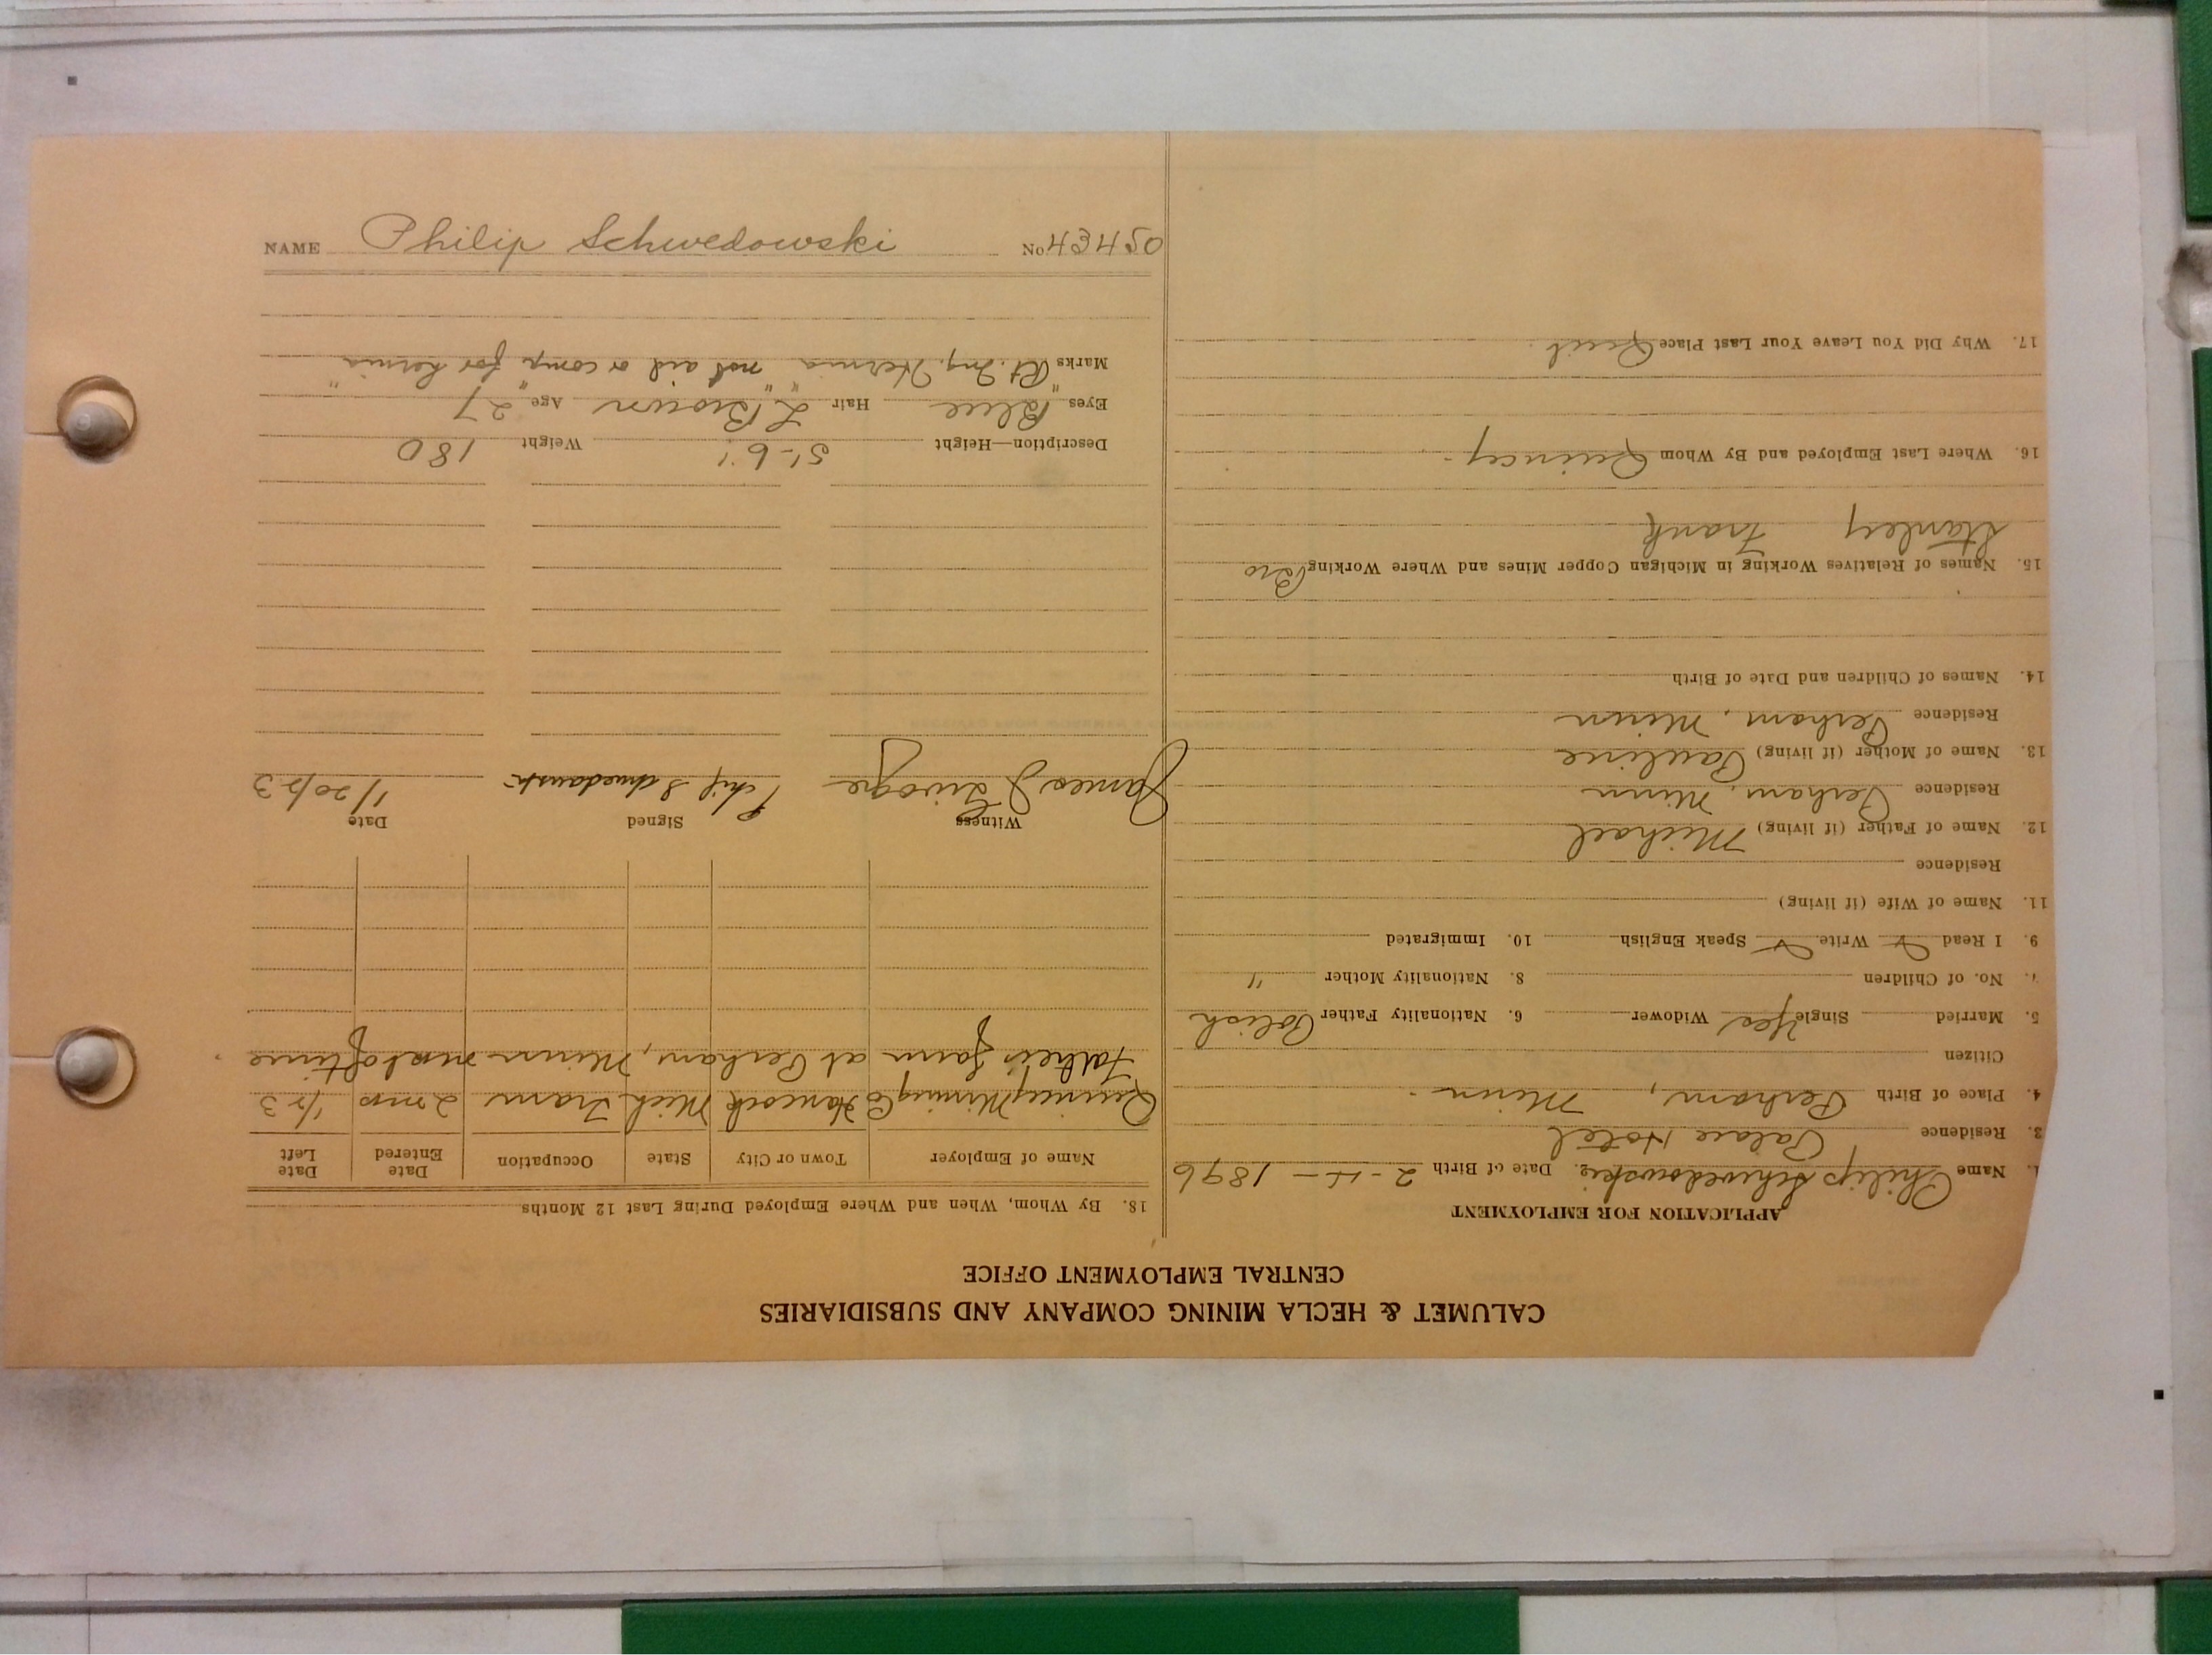 CALUMET & HECLA MINING COMPANY AND SUBSIDIARIES
CENTRAL EMPLOYMENT OFFICE
APPLICATION FOR EMPLOYMENT
1. Name Philip Schwedowski 2. Date of Birth 2-4-1896
3. Residence Palace Hotel
4. Place of Birth Perham, Minn
Citizen
5. Married Single Yes Widower 6. Nationality Father Polish
7. No. of Children 8. Nationality Mother "
9. I Read Write Speak English 10. Immigrated
11. Name of Wife (if living)
Residence
12. Name of Father (if living) Michael
Residence Perham, Minn
13. Name of Mother (if living) Pauline
Residence Perham, Minn
14. Names of Children and Date of Birth
15. Names of Relatives Working in Michigan Copper Mines and Where Working Bro
Stanley Frank
16. Where Last Employed and By Whom Quincy
17. Why Did You Leave Your Last Place Quit
18. By Whom, When and Where Employed During Last 12 Months
Name of Employer Town or City State Occupation Date Entered Date Left
Quincy Mining Co Hancock Mich Tram 2 mos 1/23
Father's farm at Perham, Minn rest of time
Witness Signed Date
James Schwedowski 1/20/23
Description—Height 5'-6" Weight 180
Eyes Blue Hair L Brown Age 27
Marks "Rt. Ing. Hernia" "not aid or comp for hernia"
NAME Philip Schwedowski No. 43450